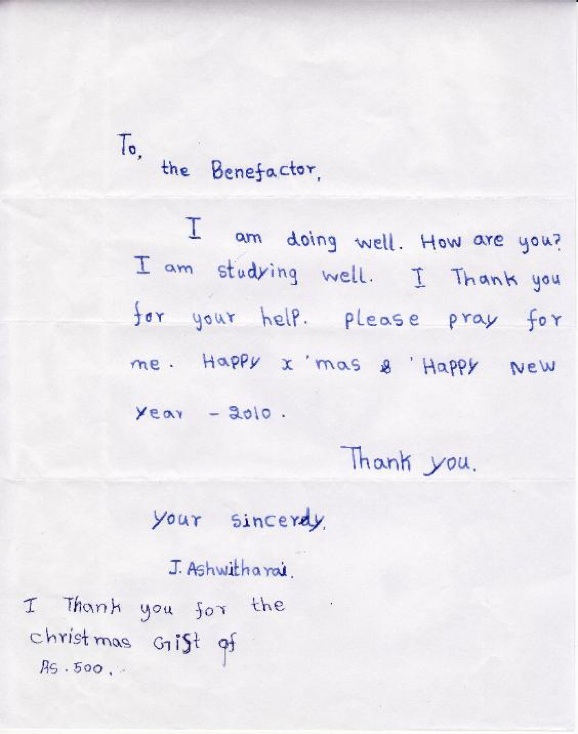 To,
the Benefactor,
I am doing well. How are you?
I am studying well. I Thank you
for your help. please pray for
me. Happy x 'mas & 'Happy New
year - 2010.
Thank you.
your sincerely,
J. Ashwitharai.
I Thank you for the
christmas Gift of
Rs. 500.